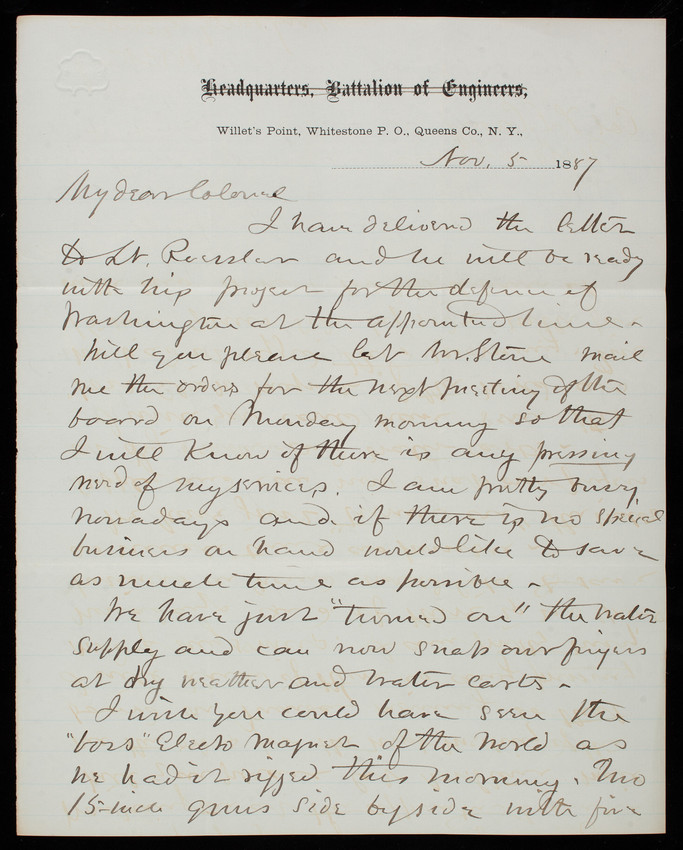 Headquarters, Battalion of Engineers,
Willet's Point, Whitestone P. O., Queens Co., N. Y.,
Nov. 5 1887
My dear Colonel
I have delivered the letter
to Lt. Roessler and he will be ready
with his project for the defence of
Washington at the appointed time.
Will you please let Mr. Stone mail
me the orders for the next meeting of the
board on Monday morning so that
I will know if there is any pressing
need of my services. I am pretty busy
nowadays and if there is no special
business on hand would like to save
as much time as possible.
We have just "turned on" the water
supply and can now snap our fingers
at dry weather and water carts.
I wish you could have seen the
"boss" Electo Magnet of the world as
we had it rigged this morning. Two
15-inch guns side by side with five